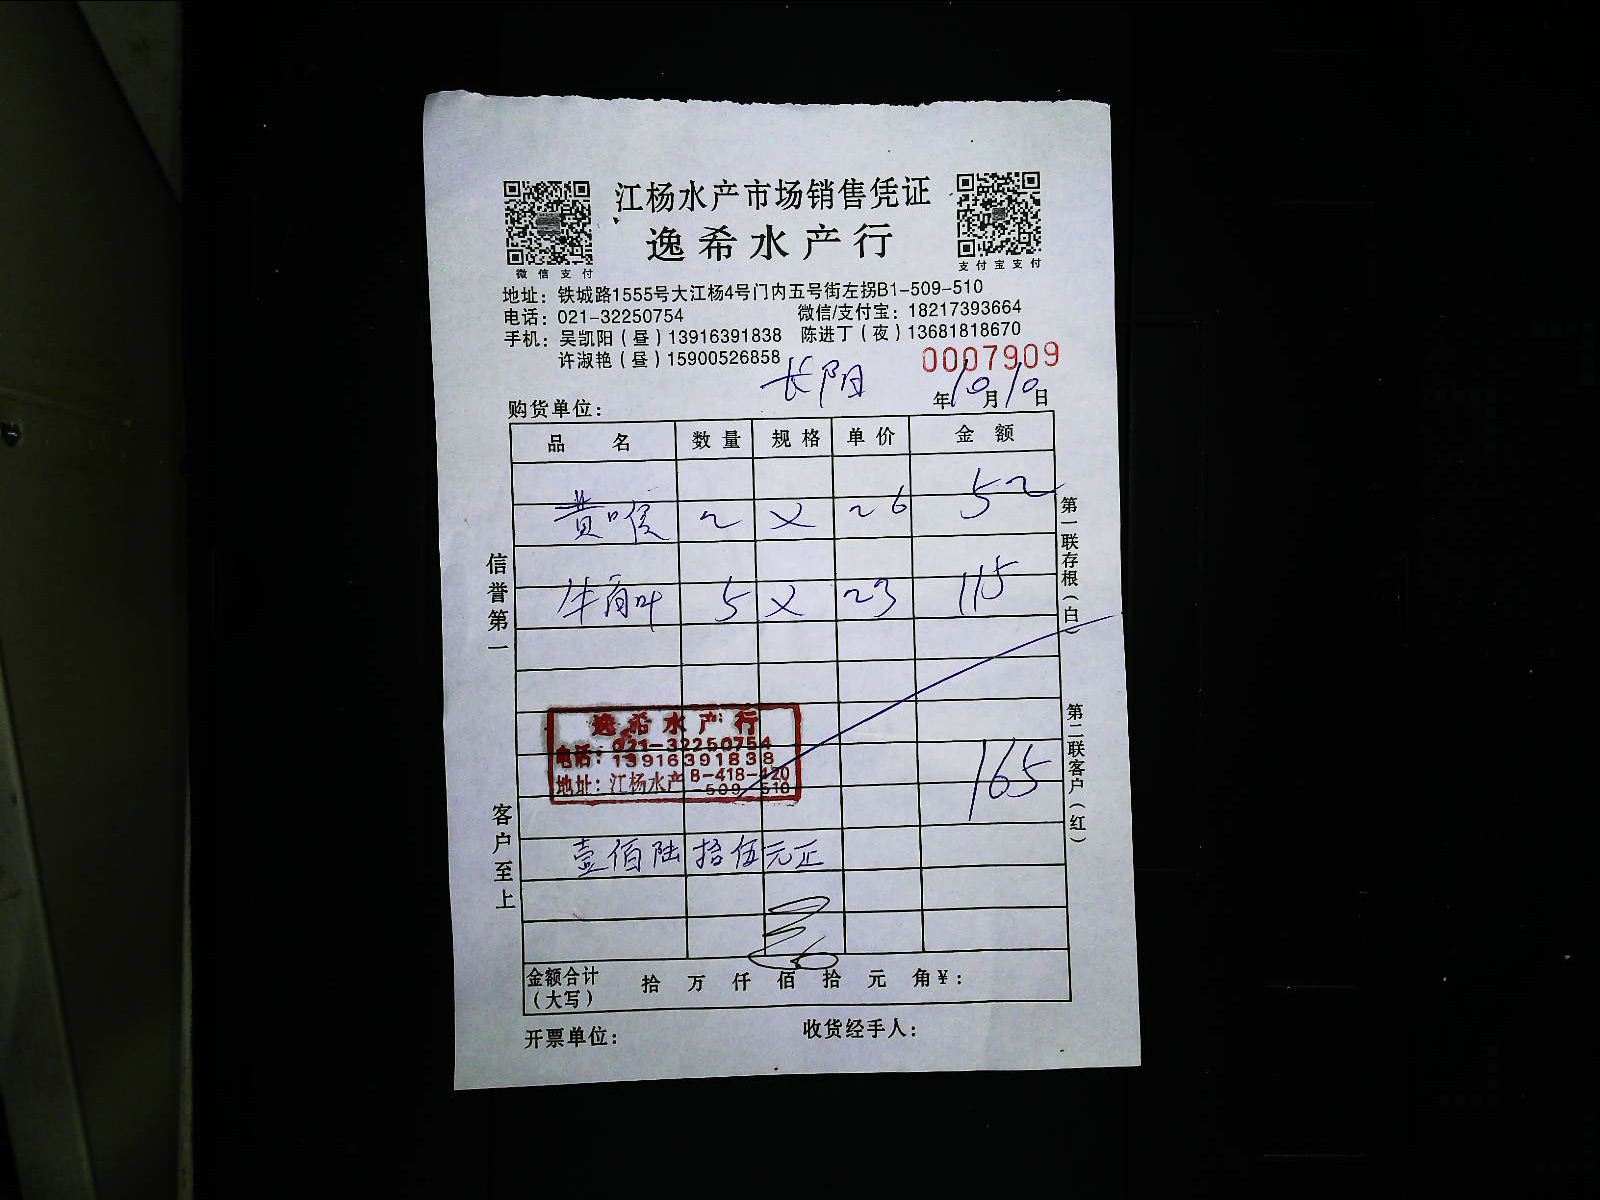 江杨水产市场销售凭证
逸希水产行
微信支付
支付宝支付
地址：铁城路1555号大江杨4号门内五号街左拐B1-509-510
电话：021-32250754 微信/支付宝：18217393664
手机：吴凯阳（昼）13916391838 陈进丁（夜）13681818670
许淑艳（昼）15900526858
0007909
长阳
购货单位： 年10月10日
品名 数量 规格 单价 金额
黄喉 2 × 26 52
牛百叶 5 × 23 115
逸希水产行
电话：021-32250754
13916391838
地址：江杨水产B-418-420
-509-510
165
壹佰陆拾伍元正
金额合计（大写） 拾 万 仟 佰 拾 元 角￥：
开票单位： 收货经手人：
信誉第一
客户至上
第一联存根（白）
第二联客户（红）